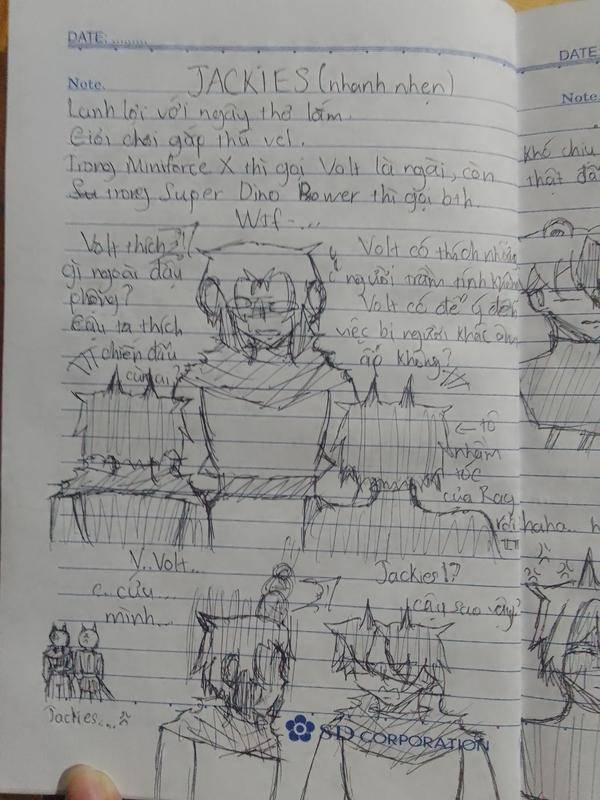 DATE: .........
Note.
JACKIES (nhanh nhẹn)
Lanh lợi với ngây thơ lắm.
Giỏi chơi gắp thú vcl.
Trong Miniforce X thì gọi Volt là ngài, còn
trong Super Dino Power thì gọi bth.
Wtf-...
Volt thích
gì ngoài đậu
phộng?
Cậu ta thích
chiến đấu
cùng ai?
Volt có thích những
người trầm tính không
Volt có để ý đến
việc bị người khác ôm
ấp không?
← tô
nhầm
tóc
của Ray
rồi haha
V..Volt..
c..cứu..
mình...
Jackies!?
cậu sao vậy?
Jackies....
SD CORPORATION
DATE
Note.
khó chịu
thật đấy